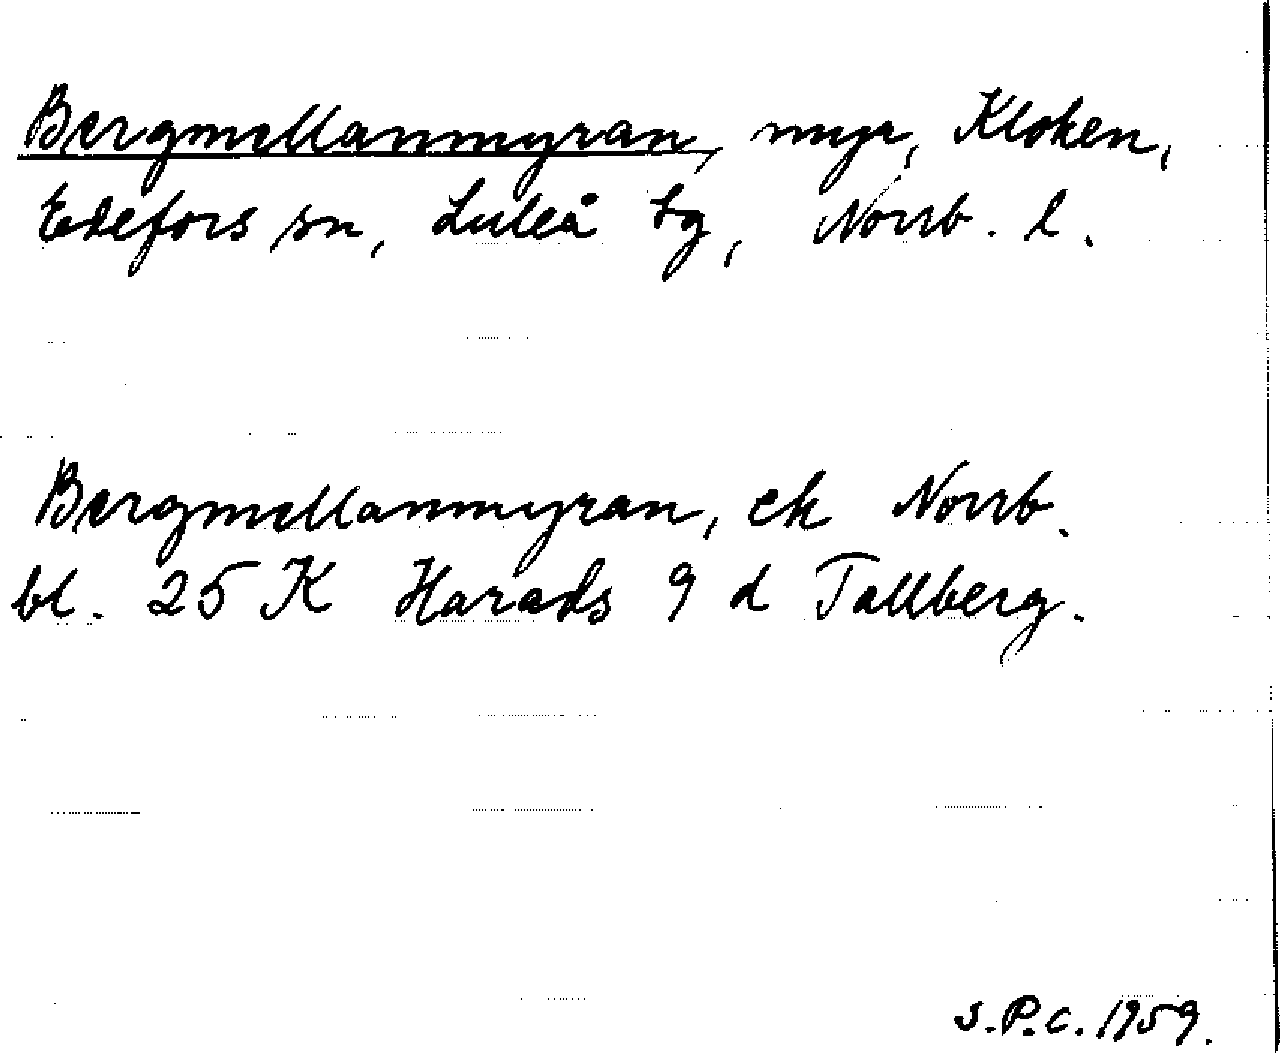 Bergmellanmyran, myr, Kloken,
Edefors sn, Luleå tg, Norrb. l.
Bergmellanmyran, ek Norrb.
bl. 25 K Harads 9 d Tallberg.
S.P.C. 1959.